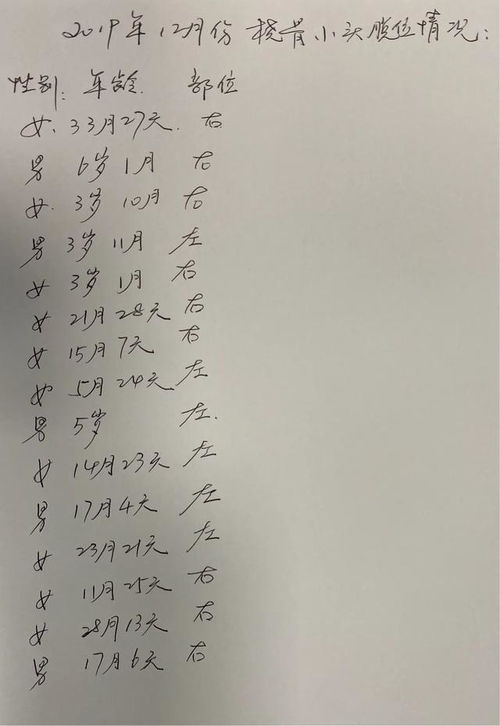 2019年12月份 桡骨小头脱位情况:
性别: 年龄. 部位
女. 33月27天. 右
男 6岁1月 右
女. 3岁10月 右
男 3岁11月 左
女 3岁1月 右
女 21月28天 右
女 15月7天 右
女 5月24天 左
男 5岁 左.
女 14月23天 左
男 17月4天 左
女 23月21天 左
女 11月25天 右
女 28月13天 右
男 17月6天 右